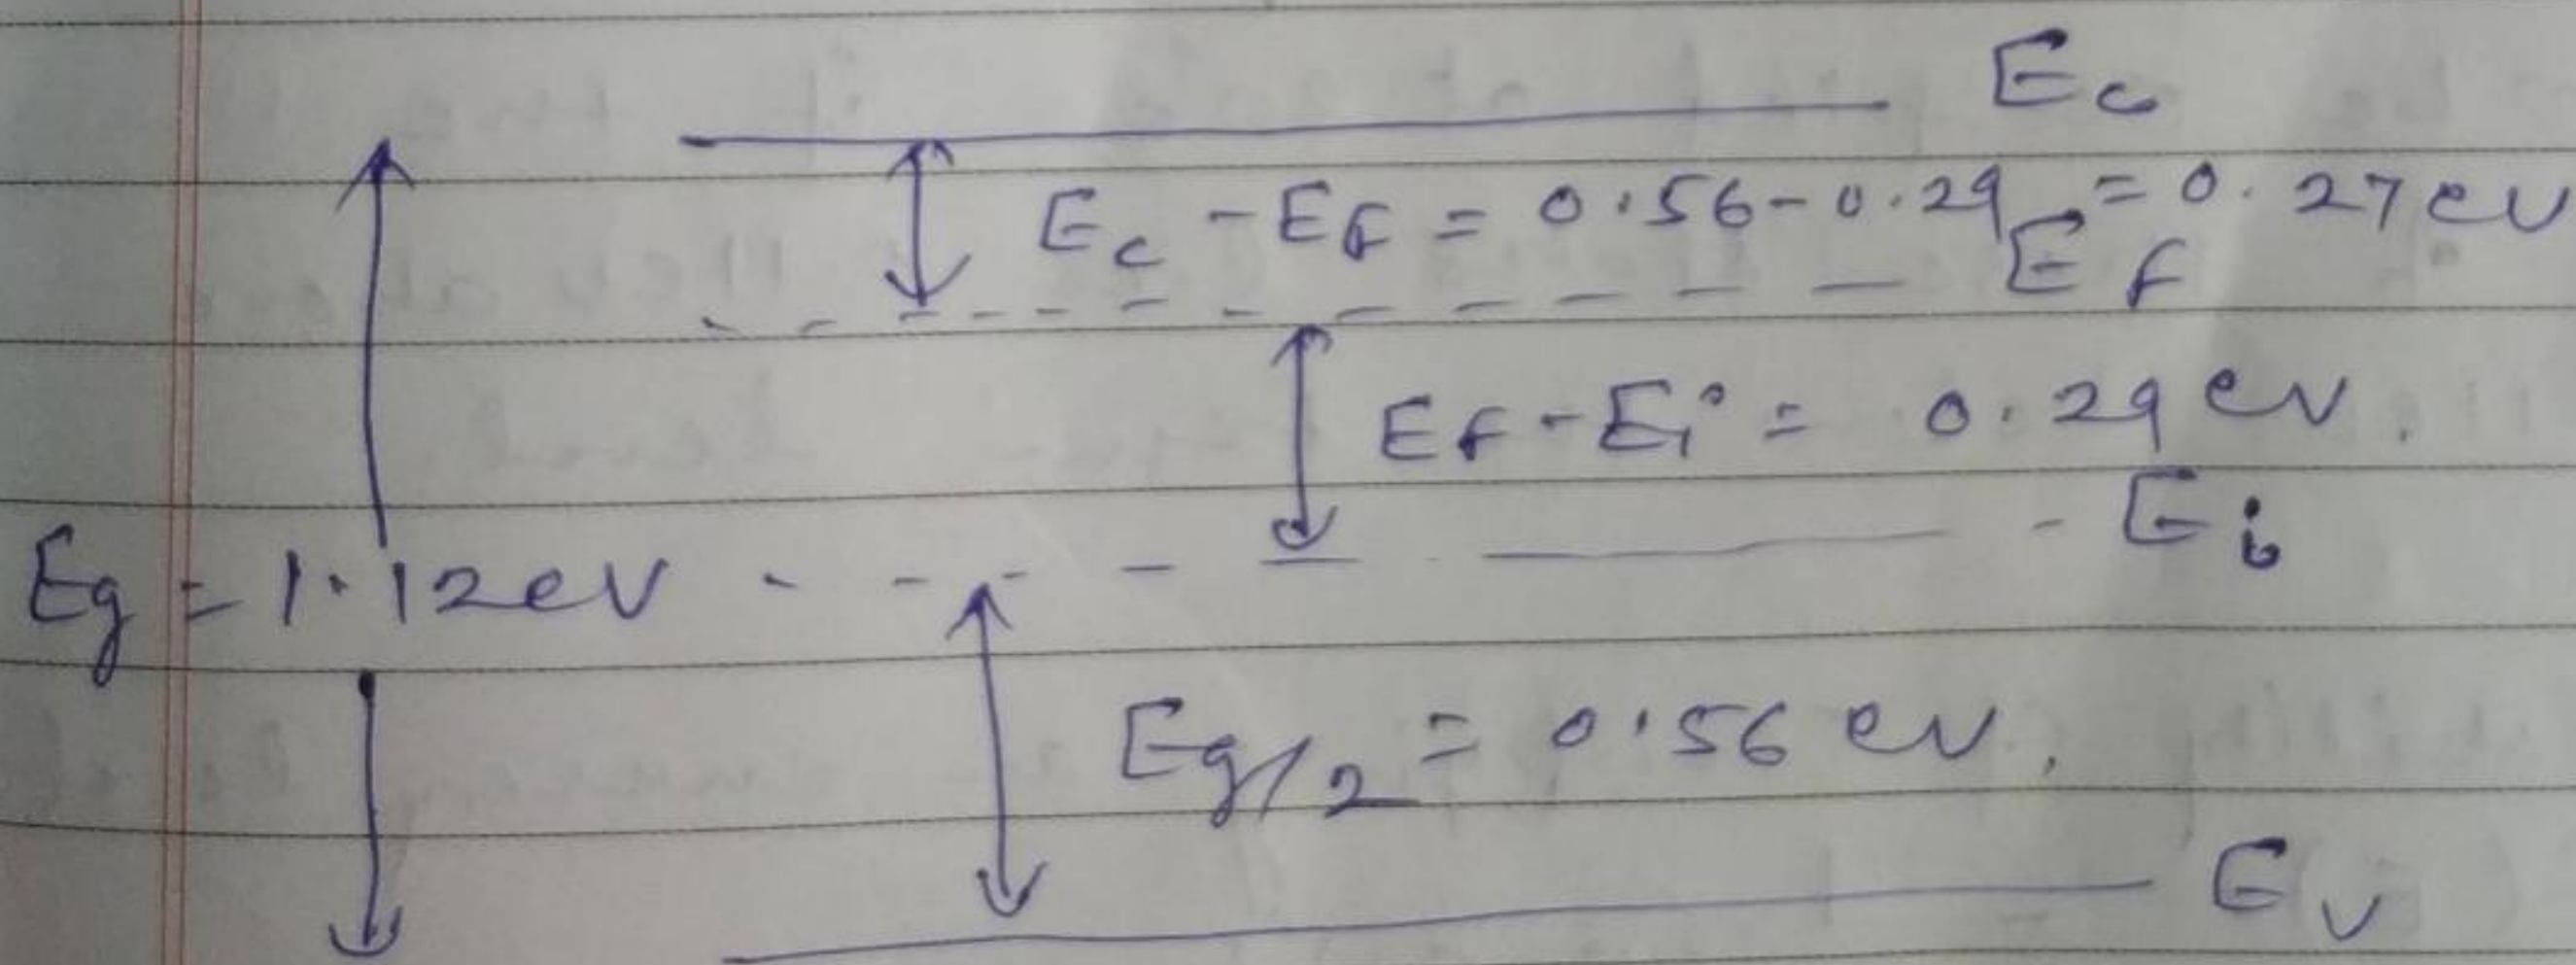 Ec
Ec - EF = 0.56 - 0.29 = 0.27 eV
EF
EF - Ei = 0.29 eV.
Ei
Eg = 1.12 eV
Eg/2 = 0.56 eV.
Ev